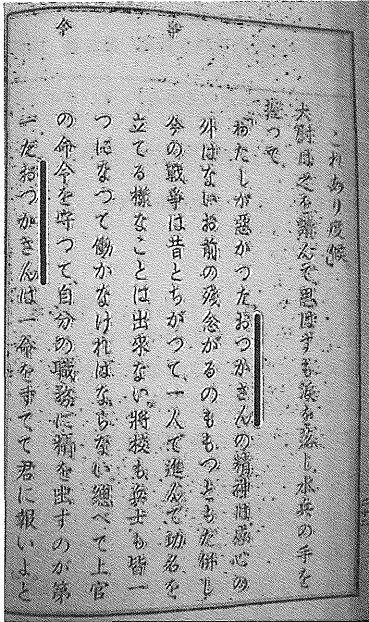 これあり度候」
大尉は之を讀んで思はずも涙を落し水兵の手を
握つて
「わたしが惡かつたおつかさんの精神は感心の
外はないお前の殘念がるのももつともだ併し
爭
今の戰爭は昔とちがつて一人で進んで功名を
立てる樣なことは出來ない將校も兵士も皆一
つになつて働かなければならない總べて上官
令
の命令を守つて自分の職務に精を出すのが第
一だおつかさんは一命をすてて君に報いよと